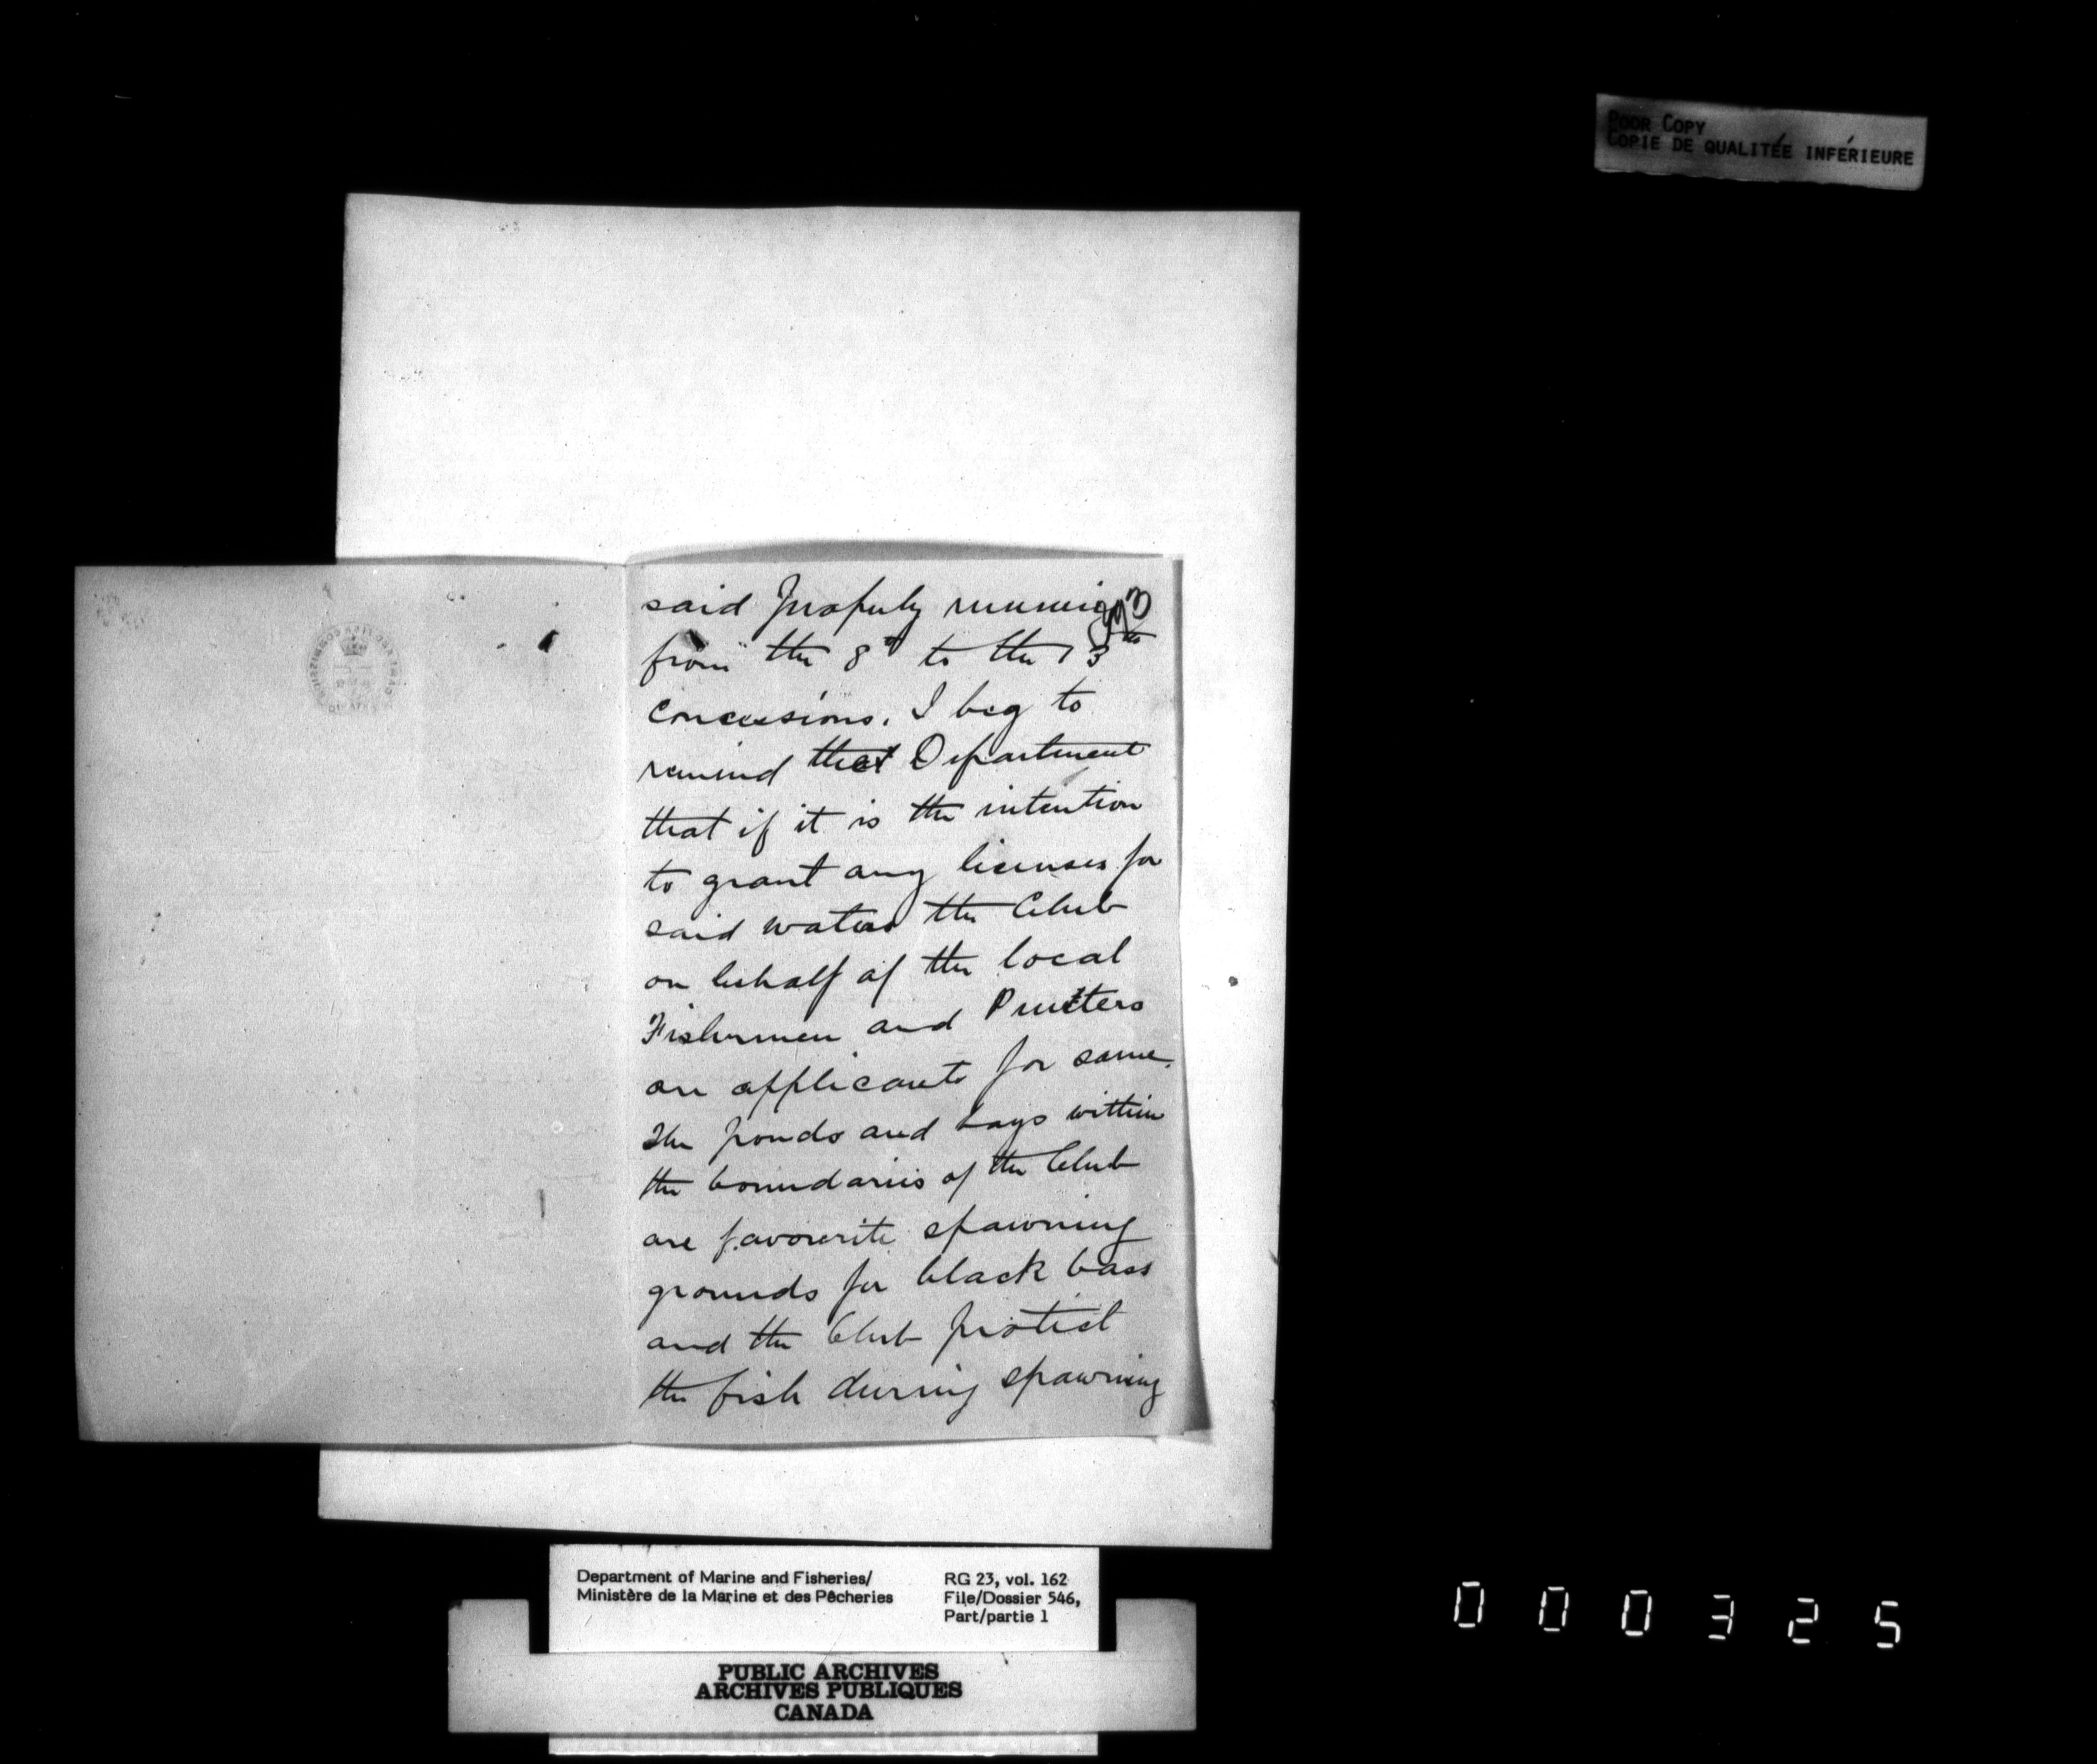 POOR COPY
COPIE DE QUALITÉE INFÉRIEURE
said property running
from the 8th to the 13th
concessions. I beg to
remind the Department
that if it is the intention
to grant any licenses for
said waters the Club
on behalf of the local
Fishermen and
are applicants for same.
The ponds and bays within
the boundaries of the Club
are favourite spawning
grounds for black bass
and the Club protect
the fish during spawning
Department of Marine and Fisheries/
Ministère de la Marine et des Pêcheries
RG 23, vol. 162
File/Dossier 546,
Part/partie 1
PUBLIC ARCHIVES
ARCHIVES PUBLIQUES
CANADA
000325